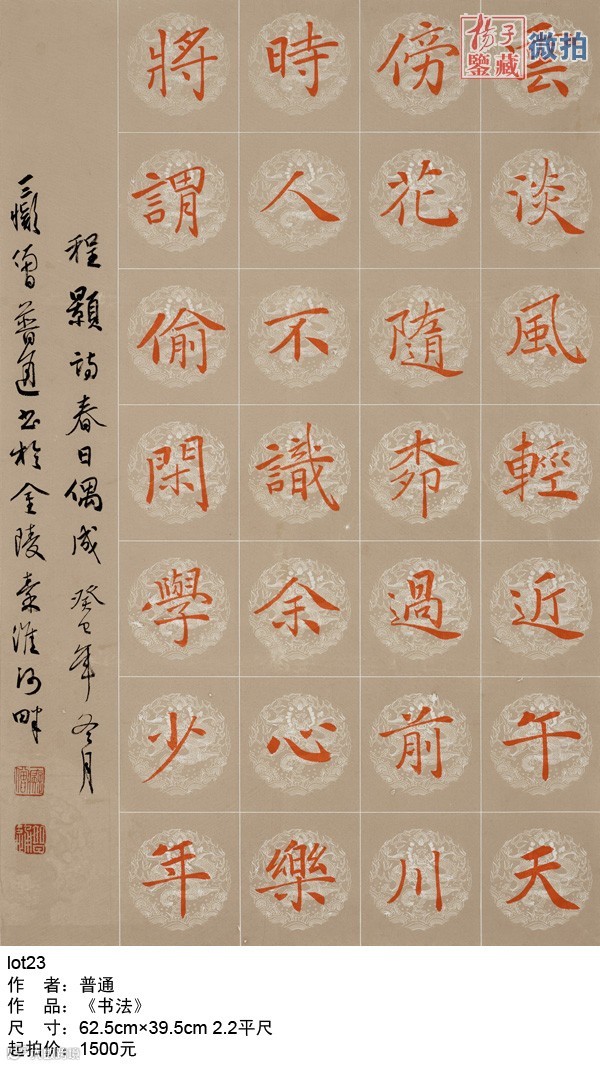 揚子
鑒藏
微拍
雲淡風輕近午天
傍花隨桺過前川
時人不識余心樂
將謂偷閑學少年
程顥詩春日偶成 癸巳年冬月
三懶僧普通书於金陵秦淮河畔
lot23
作 者：普通
作 品：《书法》
尺 寸：62.5cm×39.5cm 2.2平尺
起拍价：1500元